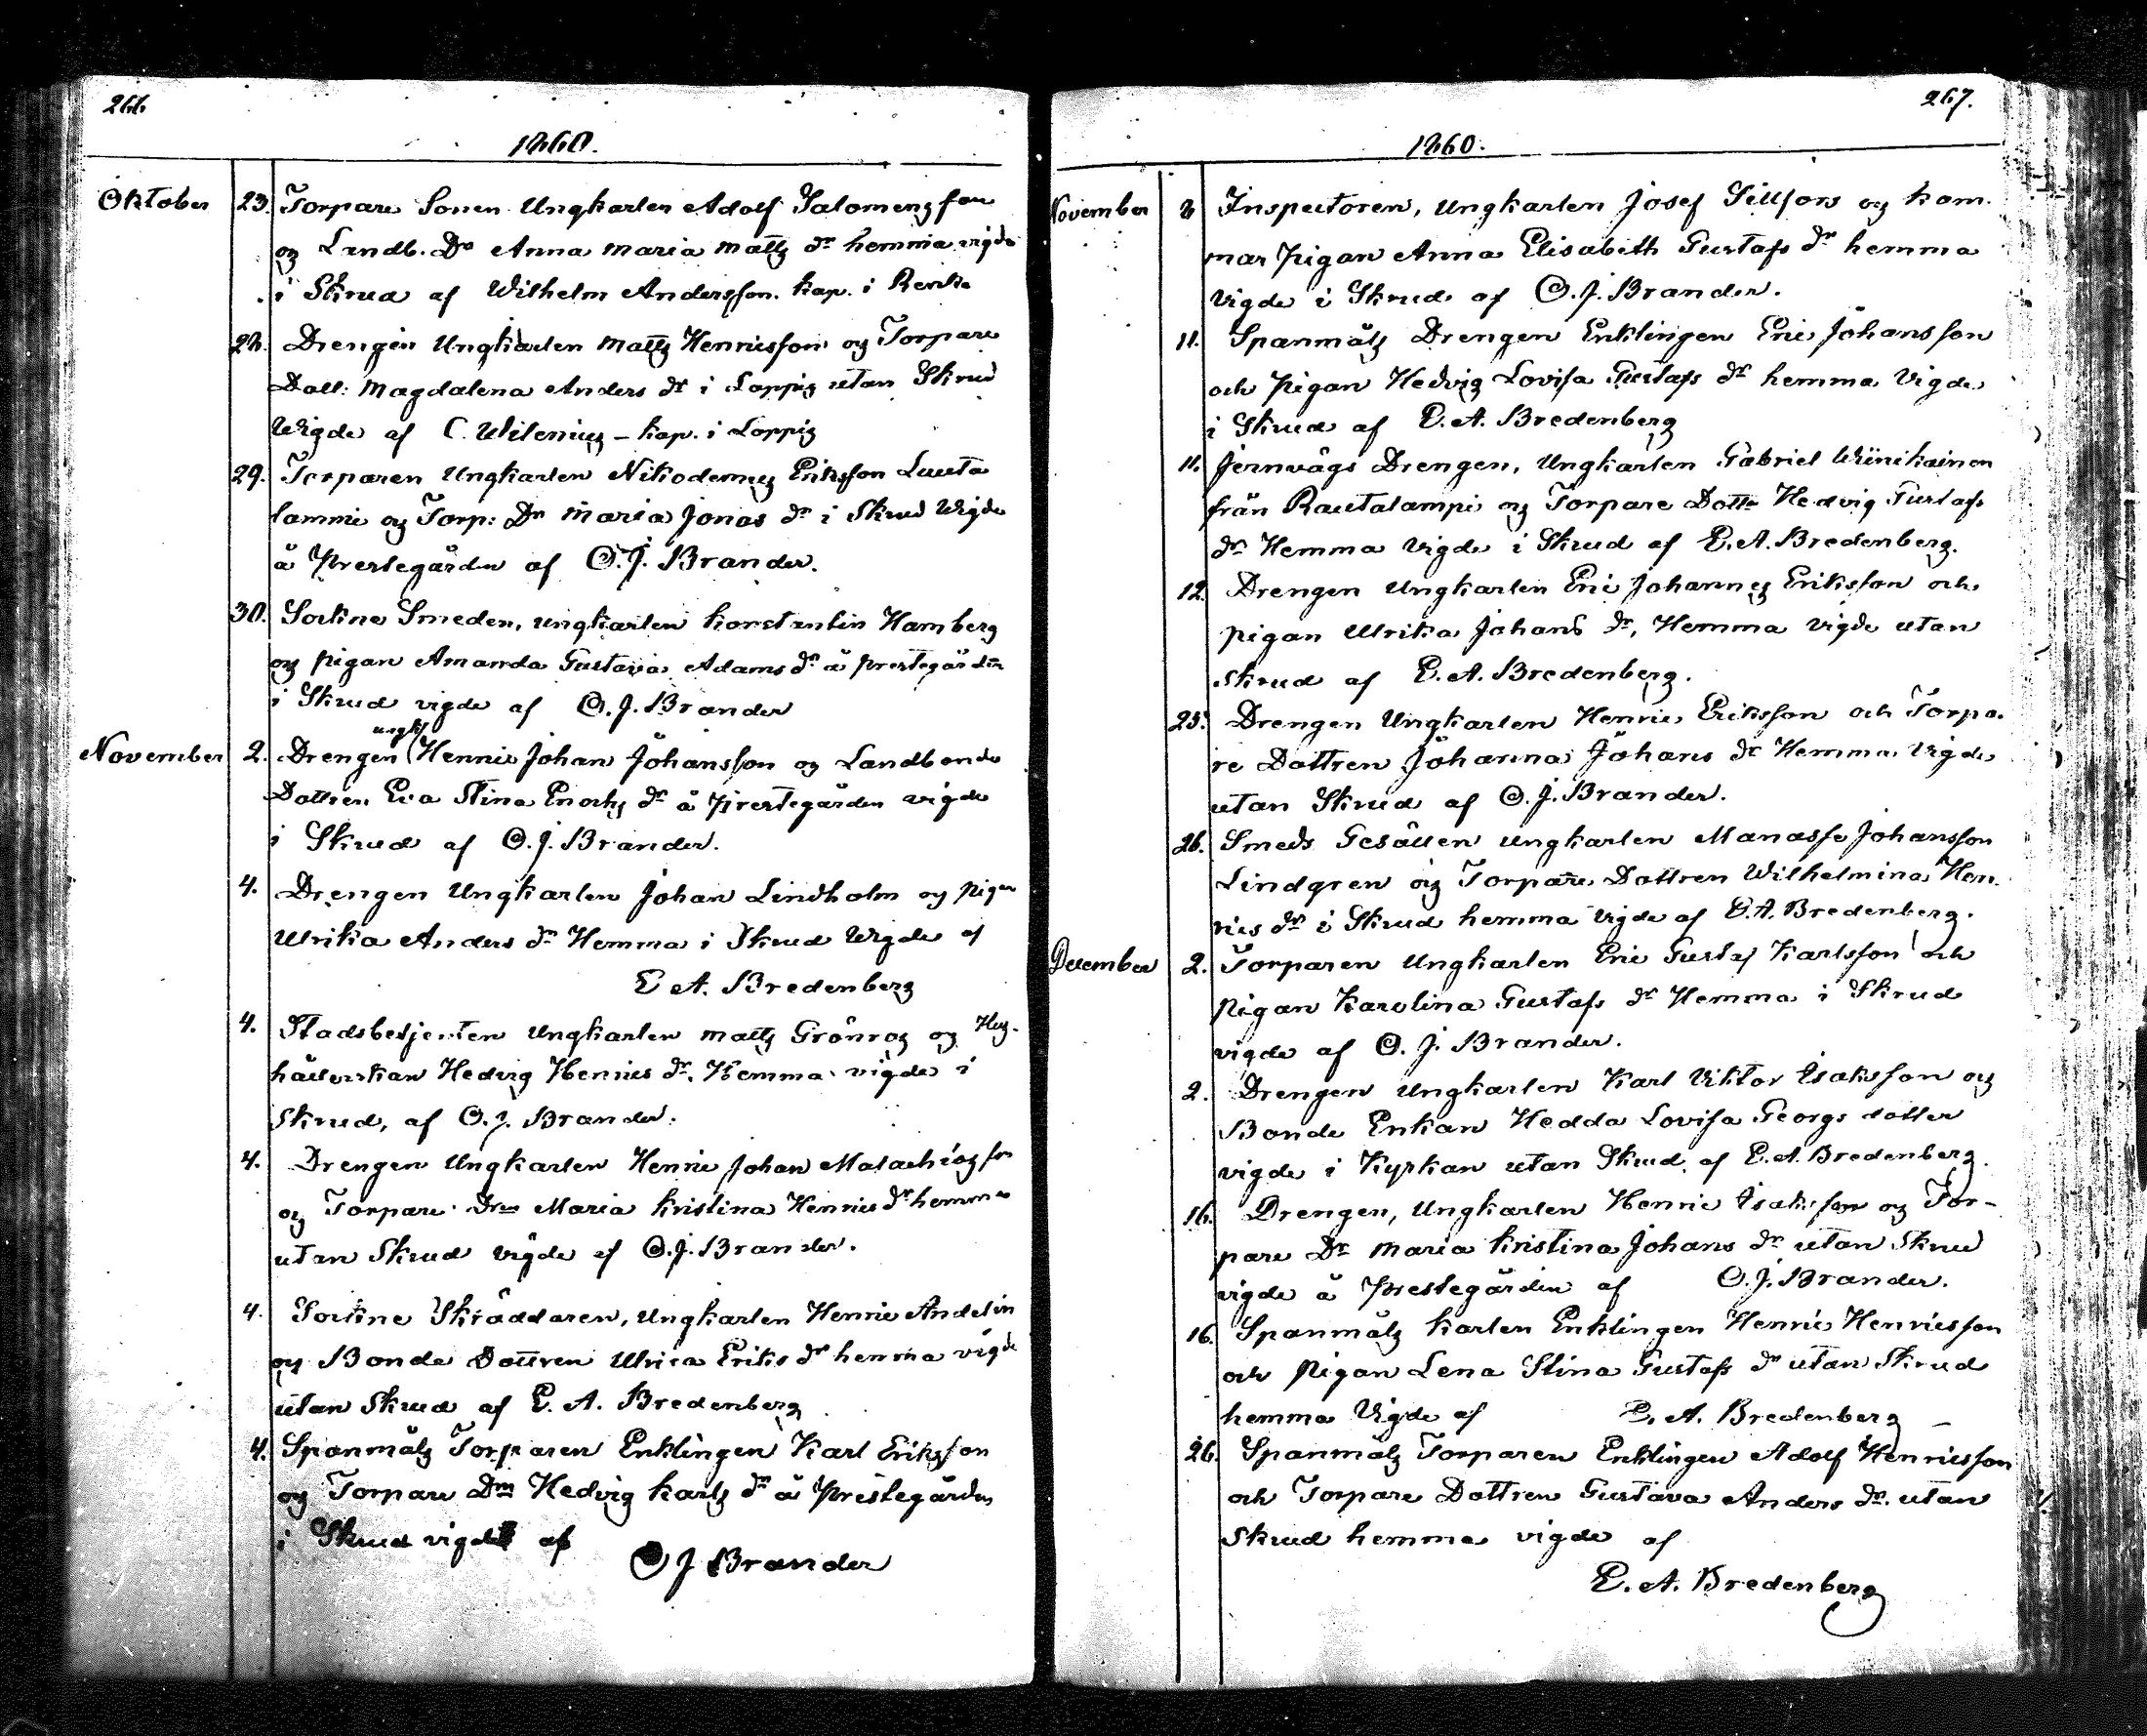 266
1860.
Oktober 23. Torpare Sonen Ungkarlen Adolf Salomensson
og Landb. Dr Anna Maria Matts dr hemma vigde
i Skrud af Wilhelm Andersson. Kap. i Renko
28. Drengen Ungkarlen Matts Henricsson og Torpare
Dott: Magdalena Anders dr i Loppis utan Skrud
Wigde af C. Wilenius - Kap. i Loppis
29. Torparen Ungkarlen Nikodemus Eriksson Luuta
lammi og Torp: Dr Maria Jonas dr i Skrud Wigde
å Prestegården af O. J. Brander.
30. Sockne Smeden, ungkarlen Konstantin Hamberg
og pigan Amanda Gustava Adams dr å prestegården
i Skrud vigde af O. J. Brander
November 2. Drengen ungk Henric Johan Johansson og Landbonde
Dottren Eva Stina Enochs dr å Prestegården vigde
i Skrud af O. J. Brander.
4. Drengen Ungkarlen Johan Lindholm og pigan
Ulrika Anders dr Hemma i Skrud Wigde af
E A. Bredenberg
4. Stadsbetjenten Ungkarlen Matts Grönros og Hus-
hållerskan Hedvig Henrics dr. Hemma vigde i
Skrud, af O. J. Brander.
4. Drengen Ungkarlen Henric Johan Malachiasson
og Torpare Drn Maria Kristina Henrics dr hemma
utan Skrud vigde af O. J. Brander.
4. Sockne Skräddaren, Ungkarlen Henric Andelin
og Bonde Dottren Ulrica Eriks dr hemma vigde
utan Skrud af E. A. Bredenberg
4. Spanmåls Torparen Enklingen Karl Eriksson
og Torpare Drn Hedvig Karls dr å Prestegården
i Skrud vigde af
O J Brander
267.
1860.
November 8 Inspectoren, Ungkarlen Josef Sillfors og Kam.
mar pigan Anna Elisabeth Gustafs dr hemma
Vigde i Skrud af O. J. Brander.
11. Spanmåls Drengen Enklingen Eric Johansson
och pigan Hedvig Lovisa Gustafs dr hemma Vigde
i Skrud af E. A. Bredenberg
11. Jernvägs Drengen, Ungkarlen Gabriel Wiinikainen
från Rautalampi og Torpare Dottr Hedvig Gustafs
dr Hemma Vigde i Skrud af E. A. Bredenberg.
12. Drengen Ungkarlen Eric Johannes Eriksson och
pigan Ulrika Johans dr, Hemma vigde utan
Skrud af E. A. Bredenberg.
25. Drengen Ungkarlen Henric Eriksson och Torpa.
re Dottren Johanna Johans dr Hemma Vigde
utan Skrud af O. J. Brander.
26. Smeds Gesällen ungkarlen Manasse Johansson
Lindgren og Torpare Dottren Wilhelmina Hen.
rics dr i Skrud hemma Vigde af E. A. Bredenberg.
December 2. Torparen Ungkarlen Eric Gustaf Karlsson och
pigan Karolina Gustafs dr Hemma i Skrud
vigde af O. J. Brander.
2. Drengen Ungkarlen Karl Viktor Isaksson og
Bonde Enkan Hedda Lovisa Georgs dotter
vigde i Kyrkan utan Skrud af E. A. Bredenberg.
16. Drengen, Ungkarlen Henric Isaksson og Tor-
pare Dr Maria Kristina Johans dr utan Skrud
vigde å Prestegården af O. J. Brander.
16. Spanmåls karlen Enklingen Henric Henricsson
och pigan Lena Stina Gustafs dr utan Skrud
hemma Vigde af E. A. Bredenberg -
26. Spanmåls Torparen Enklingen Adolf Henricsson
och Torpare Dottren Gustava Anders dr. utan
Skrud hemma vigde af
E. A. Bredenberg